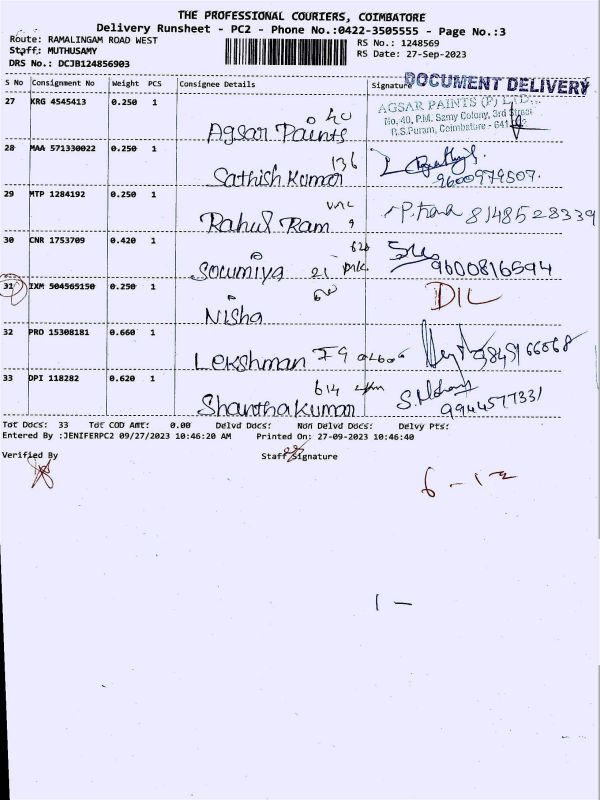 THE PROFESSIONAL COURIERS, COIMBATORE
Delivery Runsheet - PC2 - Phone No.:0422-3505555 - Page No.:3
Route: RAMALINGAM ROAD WEST
RS No.: 1248569
Staff: MUTHUSAMY
RS Date: 27-Sep-2023
DRS No.: DCJB124856903
S No Consignment No Weight PCS Consignee Details Signature
DOCUMENT DELIVERY
27 KRG 4545413 0.250 1
AGSAR PAINTS (P) LTD.,
No. 40, P.M. Samy Colony, 3rd Street
R.S.Puram, Coimbatore - 641
40
Agsar Paints
28 MAA 571330022 0.250 1
136
Sathish Kumar
9600979507.
29 MTP 1284192 0.250 1
Rahul Ram
8148528339
30 CNR 1753709 0.420 1
Soumiya 21
9600816594
31 IXM 504565150 0.250 1
Nisha
DIL
32 PRO 15308181 0.660 1
Lekshman F9
9845166068
33 OPI 118282 0.620 1
614
Shanthakumar
9944577331
Tot Docs: 33 Tot COD Amt: 0.00 Delvd Docs: Non Delvd Docs: Delvy Pts:
Entered By :JENIFERPC2 09/27/2023 10:46:20 AM Printed On: 27-09-2023 10:46:40
Verified By Staff Signature
6 - 1 - 2
1 -